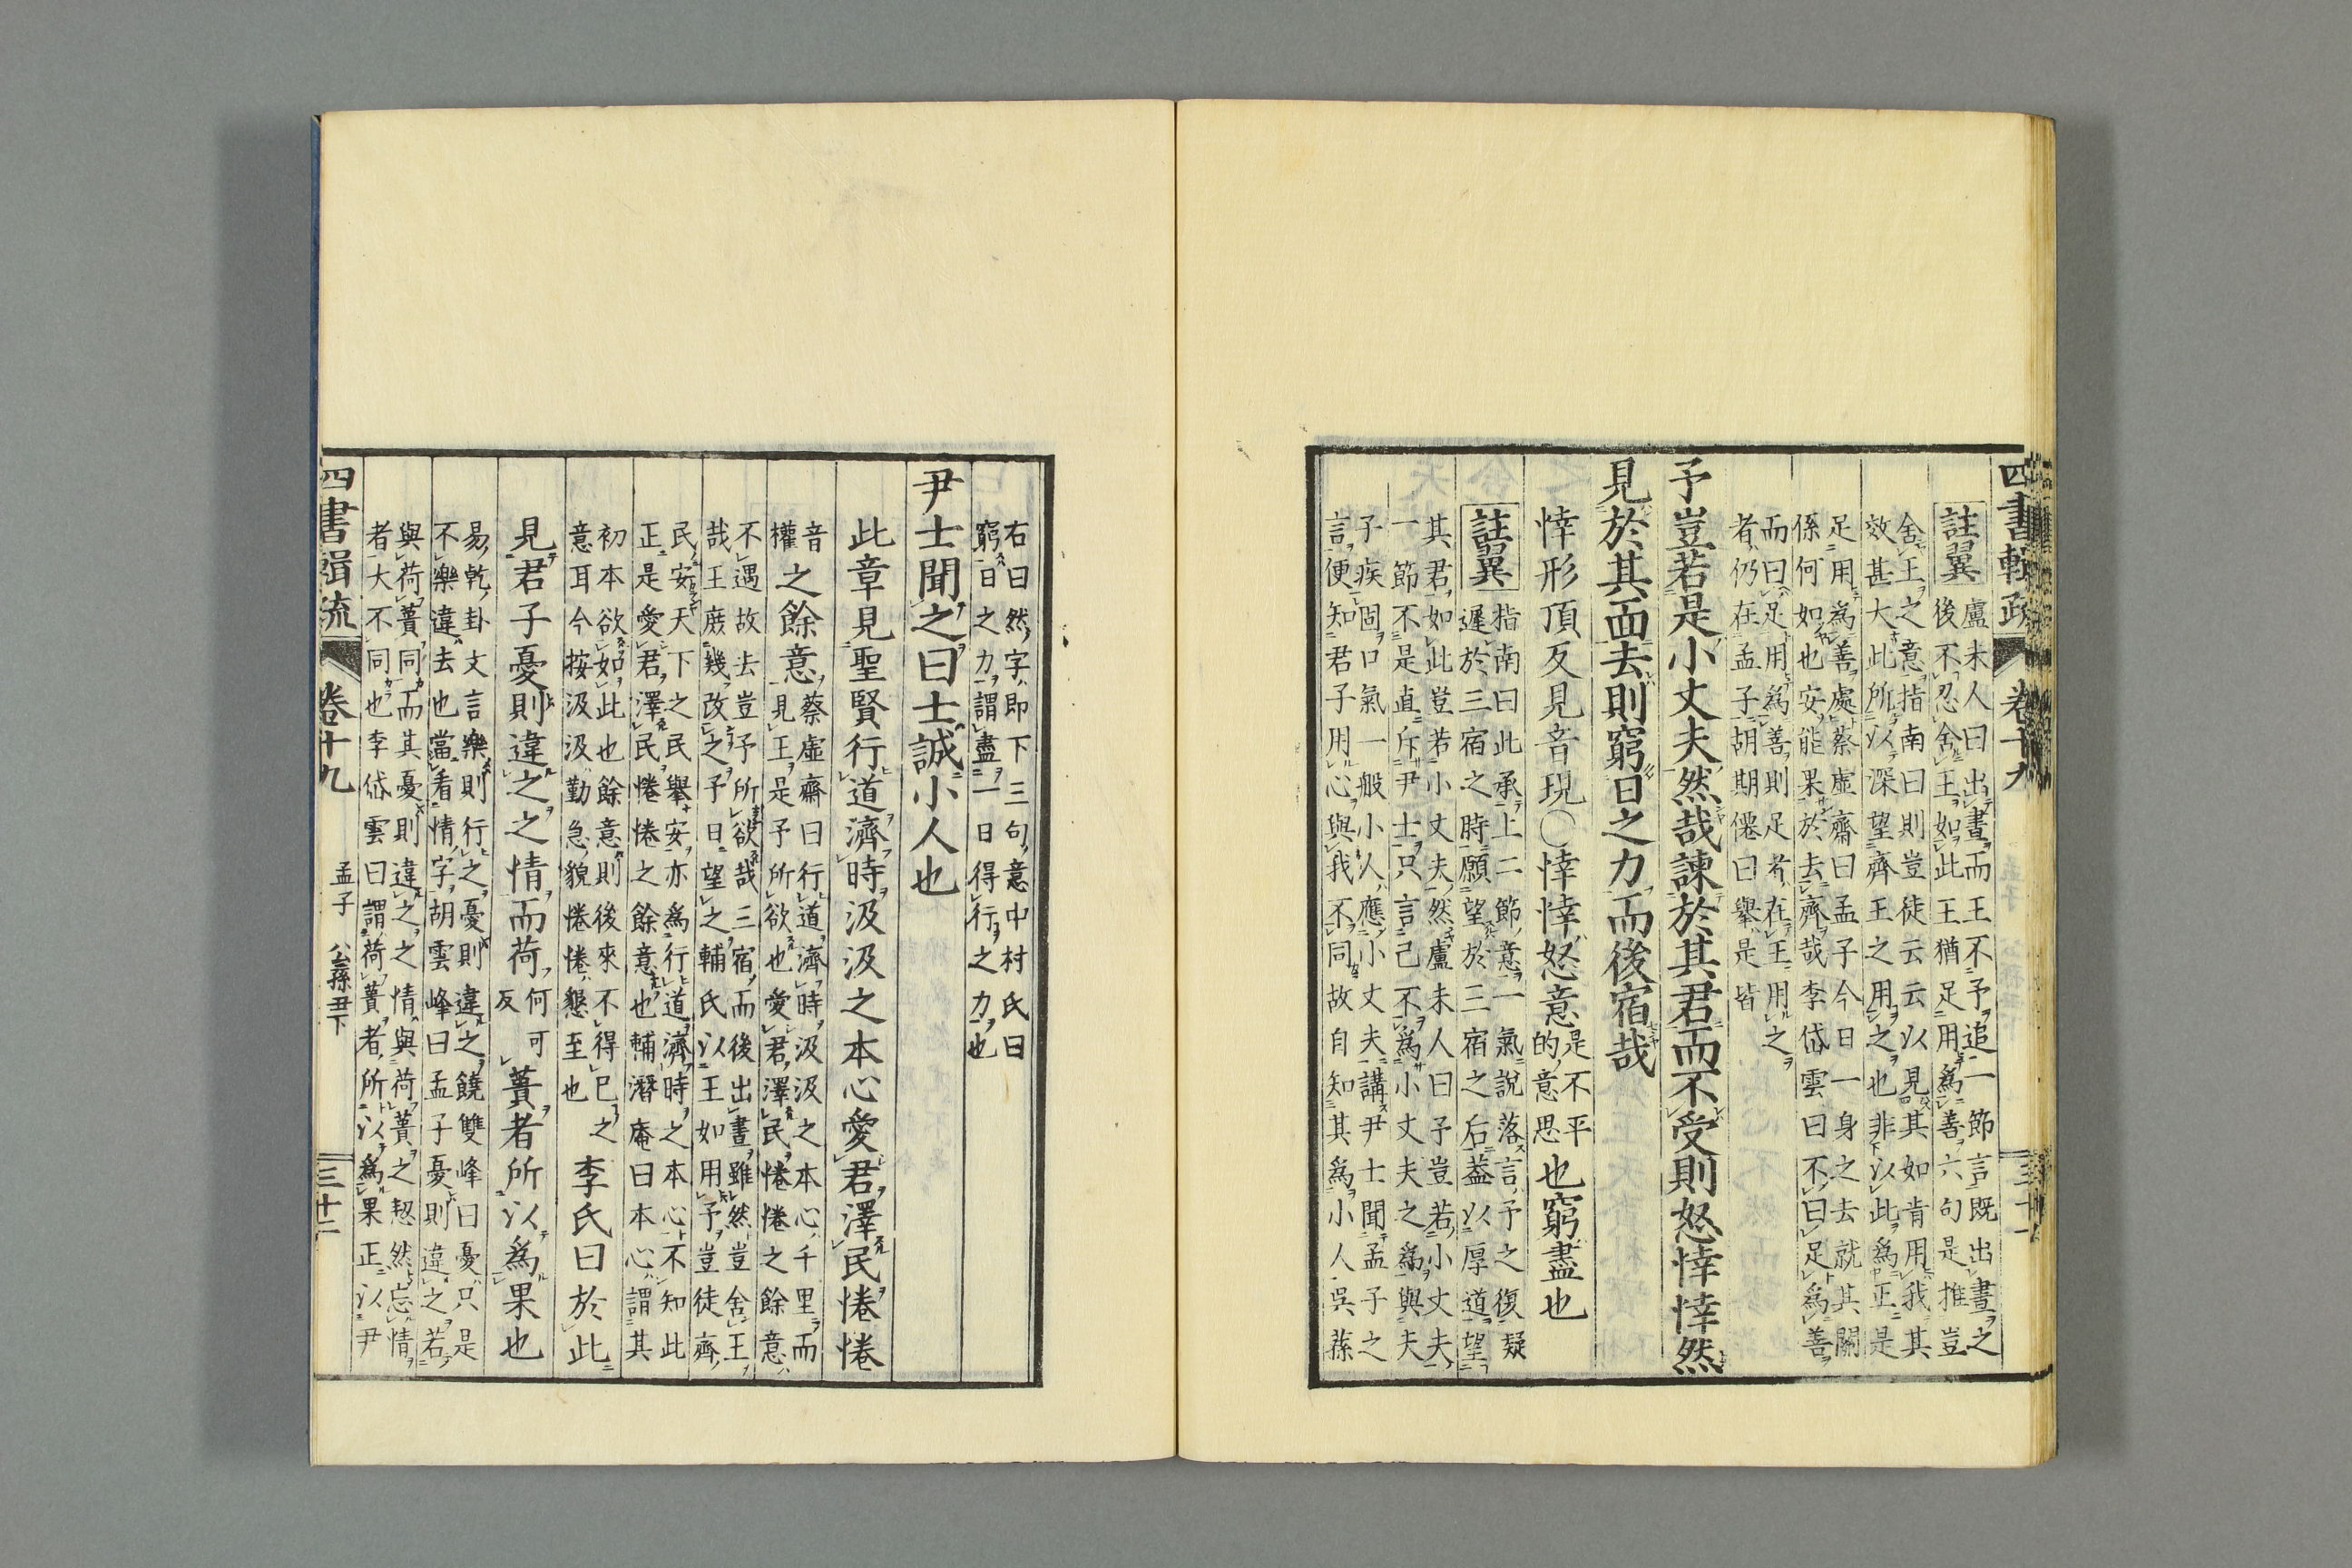 四書輯疏 卷十九 三十一
註翼
盧未人曰出晝而王不予追一節言既出晝之
後不忍舍王如此王猶足用爲善六句是推豈
舍王之意指南曰則豈徒云云以見其如肯用我其
效甚大此所以深望齊王之用之也非以此爲正是
足用爲善處蔡虛齋曰孟子今日一身之去就其關
係何如也安能果於去齊哉李岱雲曰不曰足爲善
而曰足用爲善則足者在王用之
者仍在孟子胡期僊曰舉是皆
予豈若是小丈夫然哉諫於其君而不受則怒悻悻然
見於其面去則窮日之力而後宿哉
悻形頂反見音現○悻悻怒意
是不平
的意思
也窮盡也
註翼
指南曰此承上二節意一氣說落言予之復疑
遲於三宿之時願望於三宿之后蓋以厚道望
其君如此豈若小丈夫然盧未人曰予豈若小丈夫
一節不是直斥尹士只言己不爲小丈夫之爲與夫
子疾固口氣一般小人應小丈夫講尹士聞孟子之
言便知君子用心與我不同故自知其爲小人吳蓀
右曰然字即下三句意中村氏曰
窮日之力謂盡一日得行之力也
尹士聞之曰士誠小人也
此章見聖賢行道濟時汲汲之本心愛君澤民惓惓
音
權
之餘意
蔡虛齋曰行道濟時汲汲之本心千里而
見王是予所欲也愛君澤民惓惓之餘意
不遇故去豈予所欲哉三宿而後出晝雖然豈舍王
哉王庶幾改之予日望之輔氏以王如用予豈徒齊
民安天下之民舉安亦爲行道濟時之本心不知此
正是愛君澤民惓惓之餘意也輔潛庵曰本心謂其
初本欲如此也餘意則後來不得已之
意耳今按汲汲勤急貌惓惓懇至也
李氏曰於此
見君子憂則違之之情而荷
何可
反
蕢者所以爲果也
易乾卦文言樂則行之憂則違之饒雙峰曰憂只是
不樂違去也當看情字胡雲峰曰孟子憂則違之若
與荷蕢同而其憂則違之之情與荷蕢之恝然忘情
者大不同也李岱雲曰謂荷蕢者所以爲果正以尹
四書輯疏 卷十九 孟子 公孫丑下 三十二